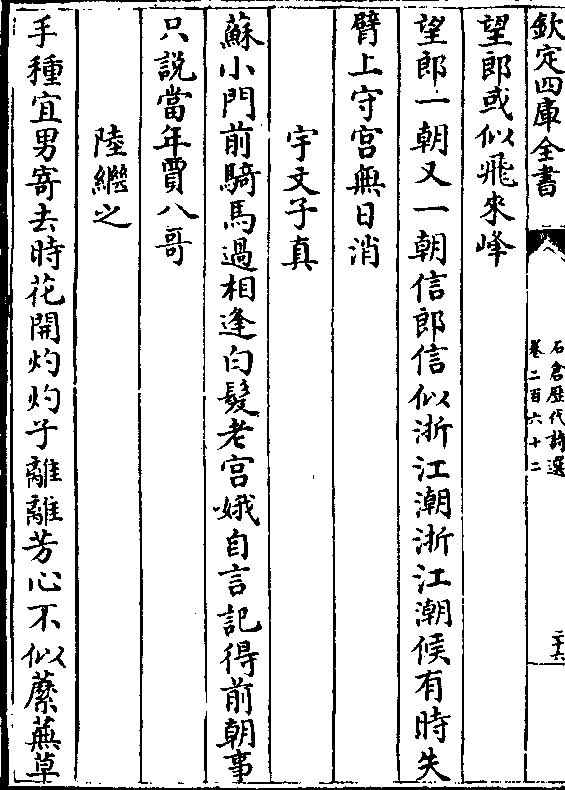 欽定四庫全書
石倉歴代詩選
卷二百六十二
二十六
望郎或似飛來峰
望郎一朝又一朝信郎信似浙江潮浙江潮候有時失
臂上守宫無日消
宇文子真
蘇小門前騎馬過相逢白髮老宫娥自言記得前朝事
只説當年賈八哥
陸繼之
手種宜男寄去時花開灼灼子離離芳心不似蘼蕪草